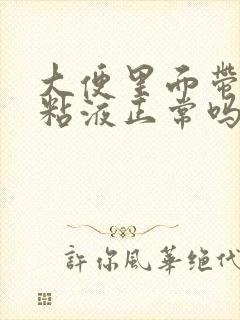 大便里面带
粘液正常吗
許你風華绝代